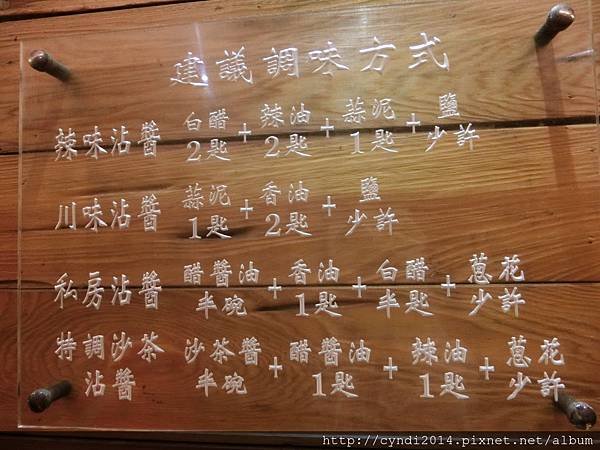 建議調味方式
辣味沾醬 白醋2匙+辣油2匙+蒜泥1匙+鹽少許
川味沾醬 蒜泥1匙+香油2匙+鹽少許
私房沾醬 醋醬油半碗+香油1匙+白醋半匙+蔥花少許
特調沙茶沾醬 沙茶醬半碗+醋醬油1匙+辣油1匙+蔥花少許
http://cyndi2014.pixnet.net/album